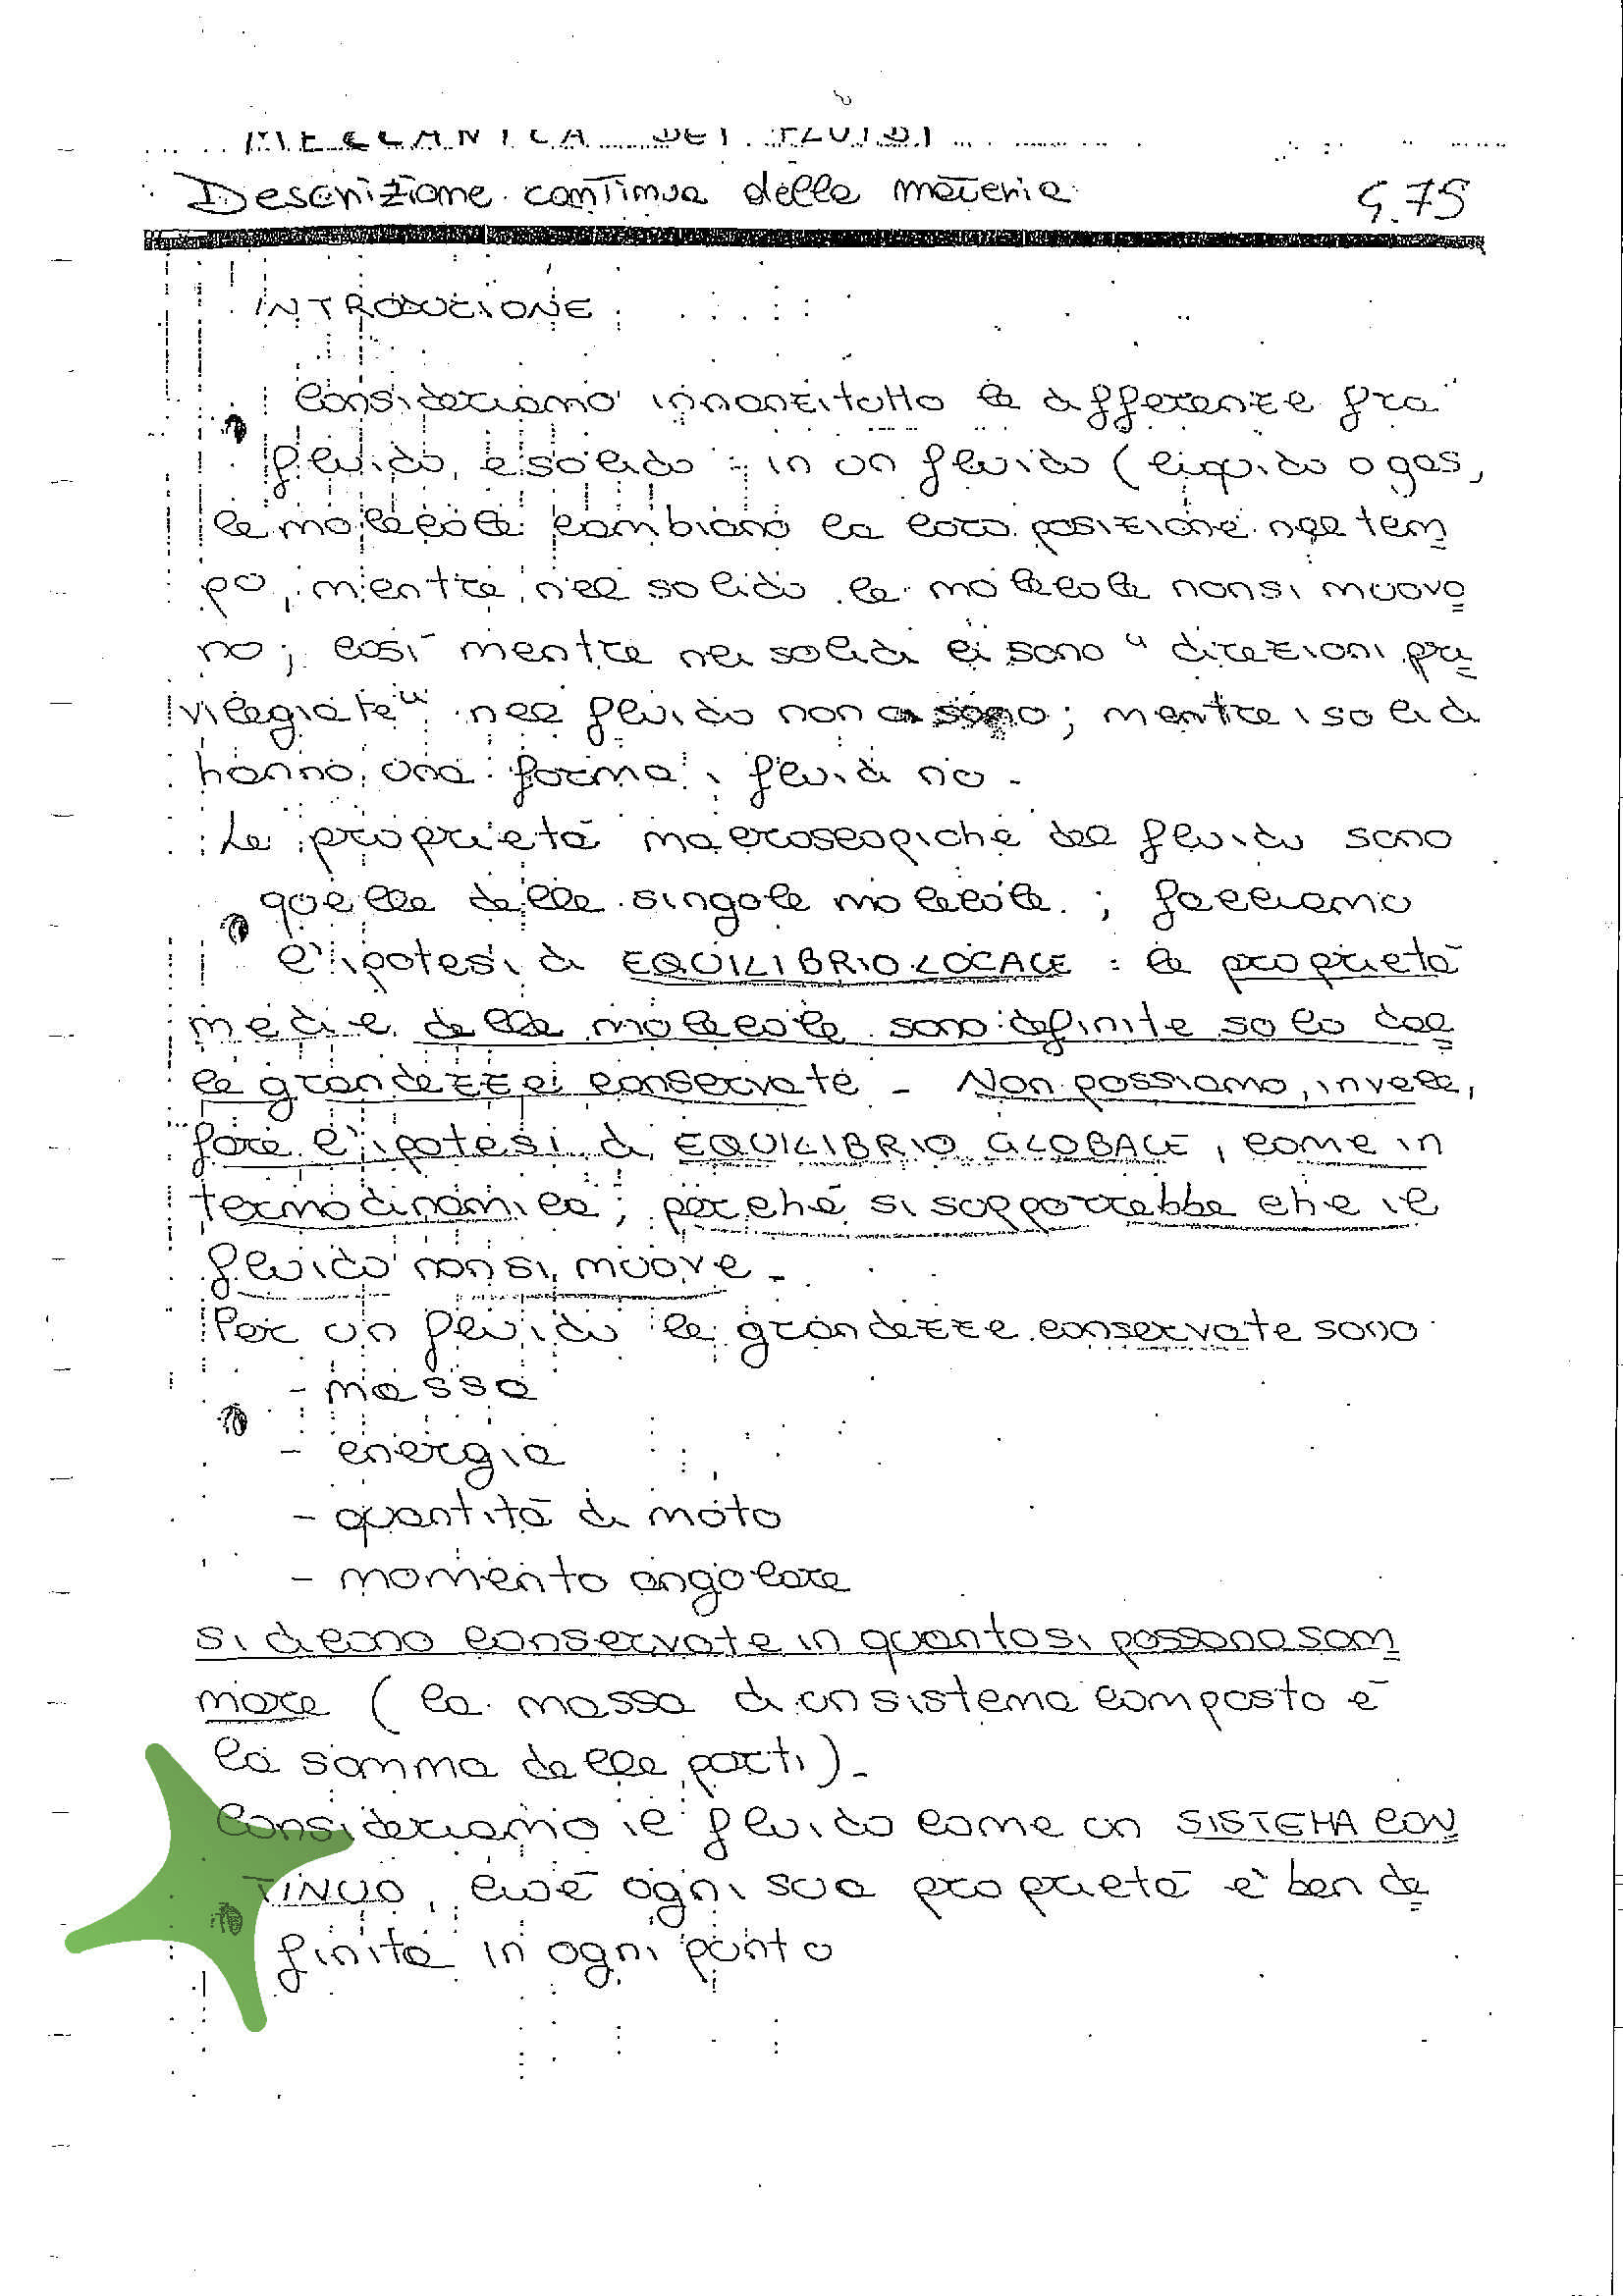 MECCANICA DEI FLUIDI
Descrizione continua della materia
INTRODUZIONE
Consideriamo innanzitutto le differenze fra
fluido e solido : in un fluido (liquido o gas,
le molecole cambiano la loro posizione nel tem
po, mentre nel solido le molecole non si muovo
no; così mentre nei solidi ci sono " direzioni pri
vilegiate" nel fluido non ci sono; mentre i solidi
hanno una forma i fluidi no -
Le proprietà macroscopiche del fluido sono
quelle delle singole molecole ; facciamo
l'ipotesi di EQUILIBRIO LOCALE : le proprietà
medie delle molecole sono definite solo dal
le grandezze conservate - Non possiamo, invece,
fare l'ipotesi di EQUILIBRIO GLOBALE, come in
termodinamica, perché si supporrebbe che il
fluido non si muove -
Per un fluido le grandezze conservate sono
- massa
- energia
- quantità di moto
- momento angolare
si dicono conservate in quanto si possono som
mare ( la massa di un sistema composto è
la somma delle parti ) -
Consideriamo il fluido come un SISTEMA CON
TINUO, cioè ogni sua proprietà è ben de
finita in ogni punto